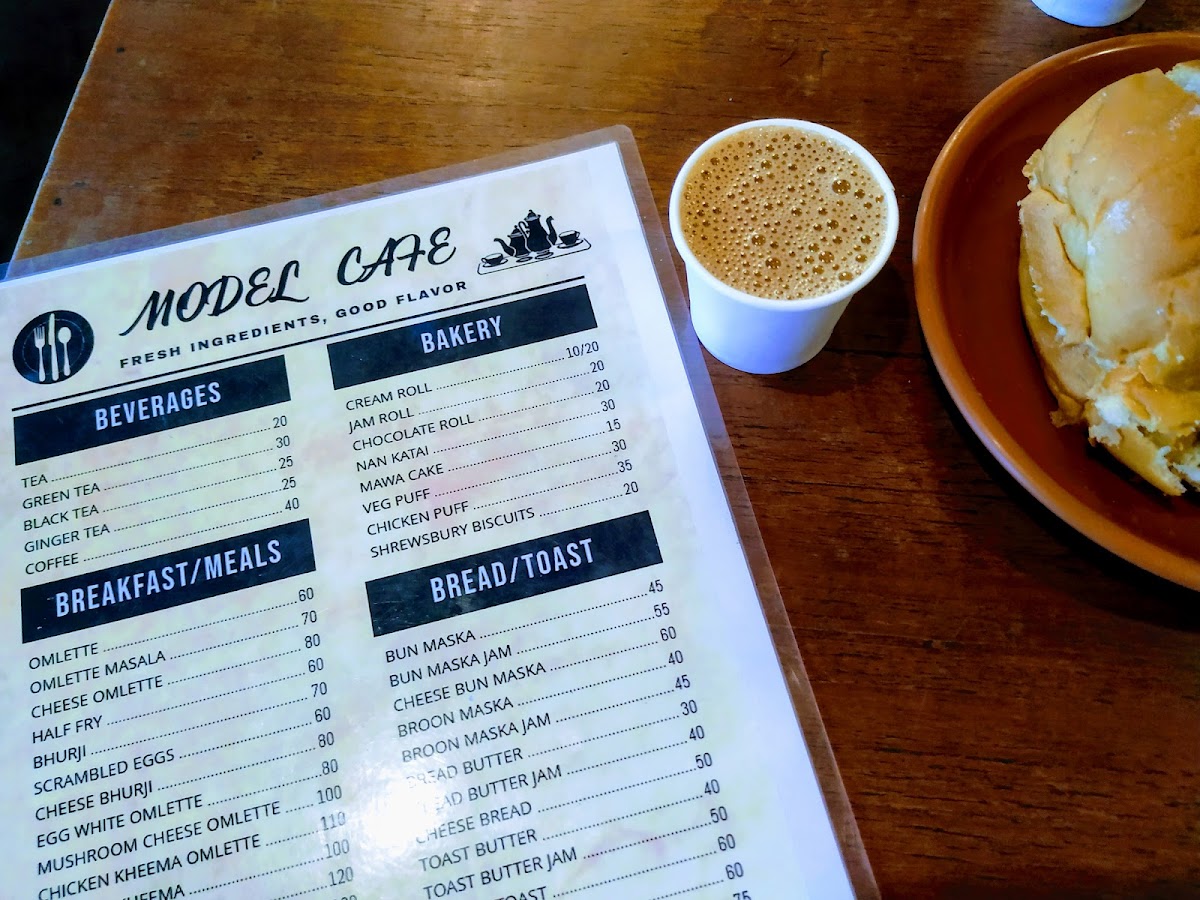 MODEL CAFE
FRESH INGREDIENTS, GOOD FLAVOR
BEVERAGES
TEA 20
GREEN TEA 30
BLACK TEA 25
GINGER TEA 25
COFFEE 40
BREAKFAST/MEALS
OMLETTE 60
OMLETTE MASALA 70
CHEESE OMLETTE 80
HALF FRY 60
BHURJI 70
SCRAMBLED EGGS 60
CHEESE BHURJI 80
EGG WHITE OMLETTE 80
MUSHROOM CHEESE OMLETTE 100
CHICKEN KHEEMA OMLETTE 110
KHEEMA 100
120
BAKERY
CREAM ROLL 10/20
JAM ROLL 20
CHOCOLATE ROLL 20
NAN KATAI 30
MAWA CAKE 15
VEG PUFF 30
CHICKEN PUFF 35
SHREWSBURY BISCUITS 20
BREAD/TOAST
BUN MASKA 45
BUN MASKA JAM 55
CHEESE BUN MASKA 60
BROON MASKA 40
BROON MASKA JAM 45
BREAD BUTTER 30
BREAD BUTTER JAM 40
CHEESE BREAD 50
TOAST BUTTER 40
TOAST BUTTER JAM 50
TOAST 60
60
75